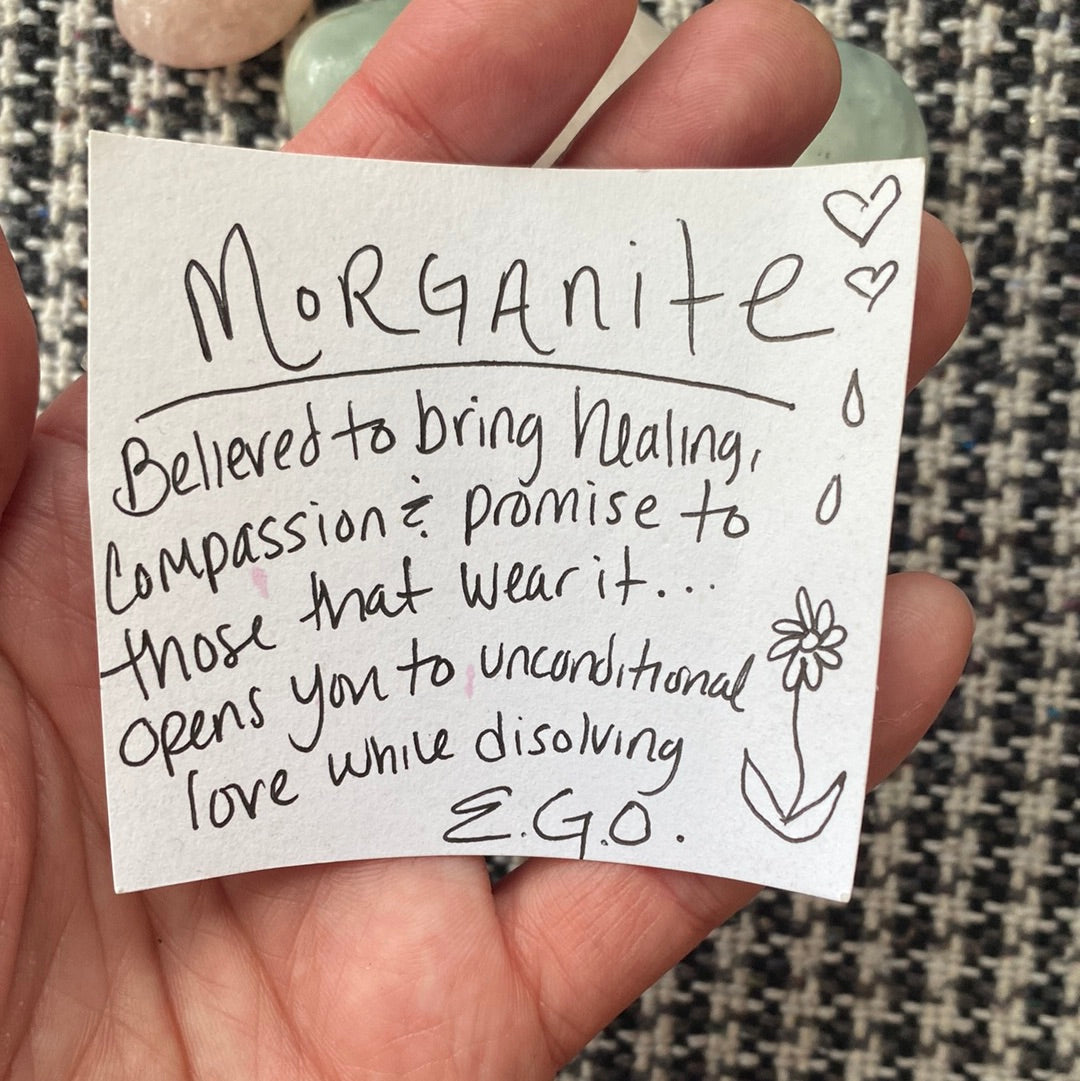 MORGAnite
Believed to bring healing,
Compassion & promise to
those that wear it...
opens you to unconditional
love while disolving
E.G.O.